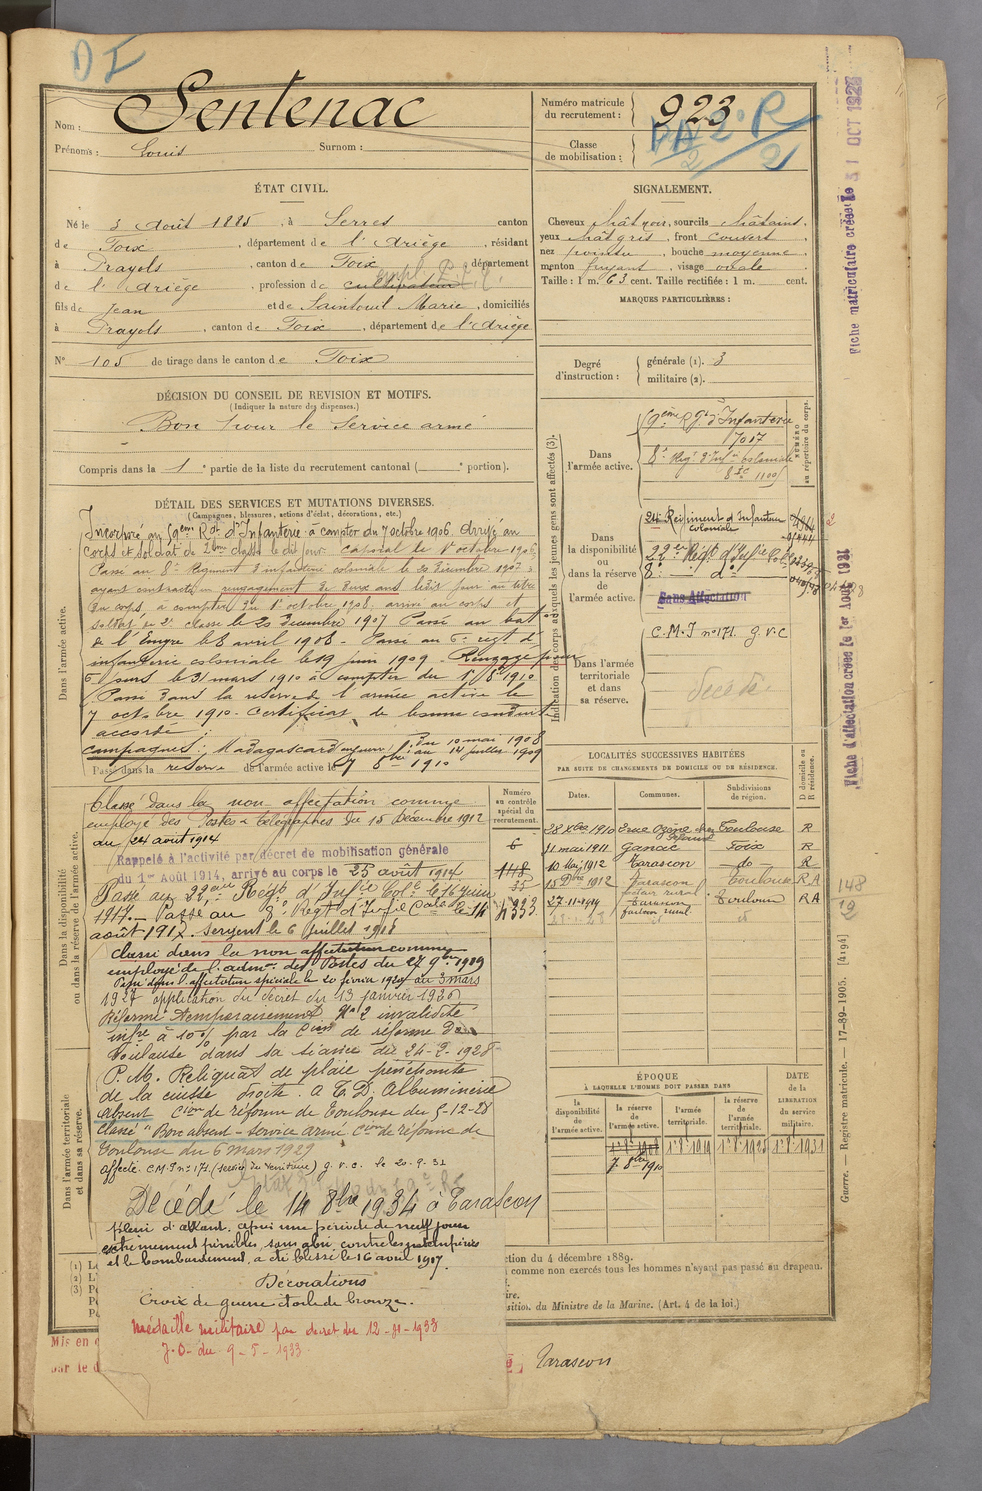 DI
Nom : Sentenac
Prénoms : Louis Surnom :
Numéro matricule du recrutement : 923
Classe de mobilisation :
2° R
2
ÉTAT CIVIL.
Né le 3 Août 1885, à Serres canton
de Foix, département de l'Ariège, résidant
à Prayols, canton de Foix département
de l'Ariège, profession de cultivateur
empl. P.T.T.
fils de Jean et de Saintoul Marie, domiciliés
à Prayols, canton de Foix, département de l'Ariège
N° 105 de tirage dans le canton de Foix
DÉCISION DU CONSEIL DE REVISION ET MOTIFS.
(Indiquer la nature des dispenses.)
Bon pour le service armé
Compris dans la 1e partie de la liste du recrutement cantonal ( e portion).
SIGNALEMENT.
Cheveux chât noir, sourcils châtains,
yeux chât gris, front couvert,
nez pointu, bouche moyenne,
menton fuyant, visage ovale
Taille : 1 m. 63 cent. Taille rectifiée : 1 m. cent.
MARQUES PARTICULIÈRES :
Degré d'instruction : générale (1). 3
militaire (2).
DÉTAIL DES SERVICES ET MUTATIONS DIVERSES.
(Campagnes, blessures, actions d'éclat, décorations, etc.)
Dans l'armée active.
Incorporé au 59eme Rgt d'Infanterie à compter du 7 octobre 1906. Arrivé au
corps et soldat de 2eme classe le dit jour. Caporal le 1r octobre 1907
Passé au 8e Régiment d'infanterie coloniale le 20 décembre 1907
ayant contracté un rengagement de deux ans ledit jour au titre
du corps à compter du 1r octobre 1908, arrivé au corps et
soldat de 2e classe le 20 décembre 1907 Passé au bat on
de l'Emyrne le 8 avril 1908 - Passé au 6e régt d'
infanterie coloniale le 19 juin 1909 - Rengagé pour
le 31 mars 1910 à compter du
Passé dans la réserve de l'armée active le
7 octobre 1910. Certificat de bonne conduite
accordé.
Campagnes : Madagascar du 10 mai 1908
au 14 juillet 1909
Passé dans la réserve de l'armée active le 7 8bre 1910
Indication des corps auxquels les jeunes gens sont affectés (3).
NUMÉRO au répertoire du corps.
Dans l'armée active.
59eme Rgt d'Infanterie
7017
8e Régt d'Infie coloniale
Dans la disponibilité ou dans la réserve de l'armée active.
24e Régiment d'Infanterie coloniale
22er Régt d'Infie Colle
8e — do
Sans Affectation
Dans l'armée territoriale et dans sa réserve.
C.M.I n° 171. G.V.C
décédé
LOCALITÉS SUCCESSIVES HABITÉES
PAR SUITE DE CHANGEMENTS DE DOMICILE OU DE RÉSIDENCE.
Dates. Communes. Subdivisions de région. D. domicile ou R. résidence.
28 Xbre 1910 Toulouse R
31 mai 1911 Ganac Foix R
10 Mai 1912 Tarascon - do - R
15 Dbre 1912 Tarascon facteur rural Toulouse RA
27-11-1919 Tarascon facteur rural Toulouse RA
Dans la disponibilité ou dans la réserve de l'armée active.
Numéro au contrôle spécial du recrutement.
Classé dans la non affectation comme
employé des Postes & Télégraphes du 15 Décembre 1912
au 24 août 1914
Rappelé à l'activité par décret de mobilisation générale
du 1er Août 1914, arrivé au corps le 25 août 1914
Passé au 22eme Régt d'Infie Colle le 16 juin
1917. - Passé au 8e Régt d'Infie Cale le 14
août 1917. Sergent le 6 juillet 1918
Classé dans la non affectation comme
employé de l'admon des Postes du 27 9bre 1919
Passé dans l'affectation spéciale le 20 février 1924 au 3 mars
1927 application du décret du 13 janvier 1926
Réformé temporairement N°2 invalidité
infre à 10% par la Cion de réforme de
Toulouse dans sa séance du 24-2-1928
P.M. Reliquat de plaie pénétrante
de la cuisse droite. A.T.D. Albuminerie
Absent Cion de réforme de Toulouse du 5-12-28
Classé "Bon absent - service armé Cion de réforme de
Toulouse du 6 mars 1929
Affecté C.M.I n° 171. (service du territoire) G.V.C. le 20-9-32
Décédé le 14 8bre 1934 à Tarascon
plein d'allant, après une période de neuf jours
extrêmement pénibles, sans abri contre les intempéries
et le bombardement, a été blessé le 16 avril 1917.
Décorations
Croix de guerre étoile de bronze.
Médaille militaire par décret du
J.O. du 9-5-1933
6
148
35
4353
Dans l'armée territoriale et dans sa réserve.
ÉPOQUE
À LAQUELLE L'HOMME DOIT PASSER DANS
la disponibilité de l'armée active. la réserve de l'armée active. l'armée territoriale. la réserve de l'armée territoriale.
DATE de la LIBÉRATION du service militaire.
7 8bre 1910
1r 8e 1919
1r 8e 1925
1r 8e 1931
ction du 4 décembre 1889.
comme non exercés tous les hommes n'ayant pas passé au drapeau.
ire.
sition du Ministre de la Marine. (Art. 4 de la loi.)
(1)
(2)
(3)
Mis en
par le d
Tarascon
Fiche matriculaire créée le 31 OCT 1926
Fiche d'affectation créée le 1er Août 1931
148
12
Guerre. — Registre matricule. — 17-89-1905. [4194]